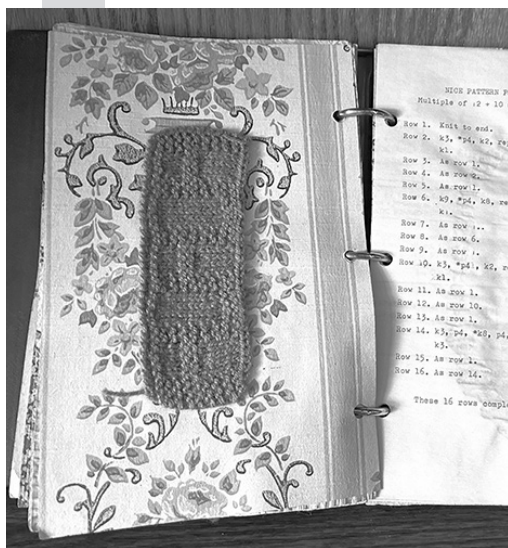 NICE PATTERN
Multiple of 12 + 10
Row 1. Knit to end.
Row 2. k3, *p4, k2,
k1.
Row 3. As row 1.
Row 4. As row 2.
Row 5. As row 1.
Row 6. k9, *p4, k8,
k1.
Row 7. As row 1.
Row 8. As row 6.
Row 9. As row 1.
Row 10. k3, *p4, k2,
k1.
Row 11. As row 1.
Row 12. As row 10.
Row 13. As row 1.
Row 14. k3, p4, *k8, p4,
k3.
Row 15. As row 1.
Row 16. As row 14.
These 16 rows